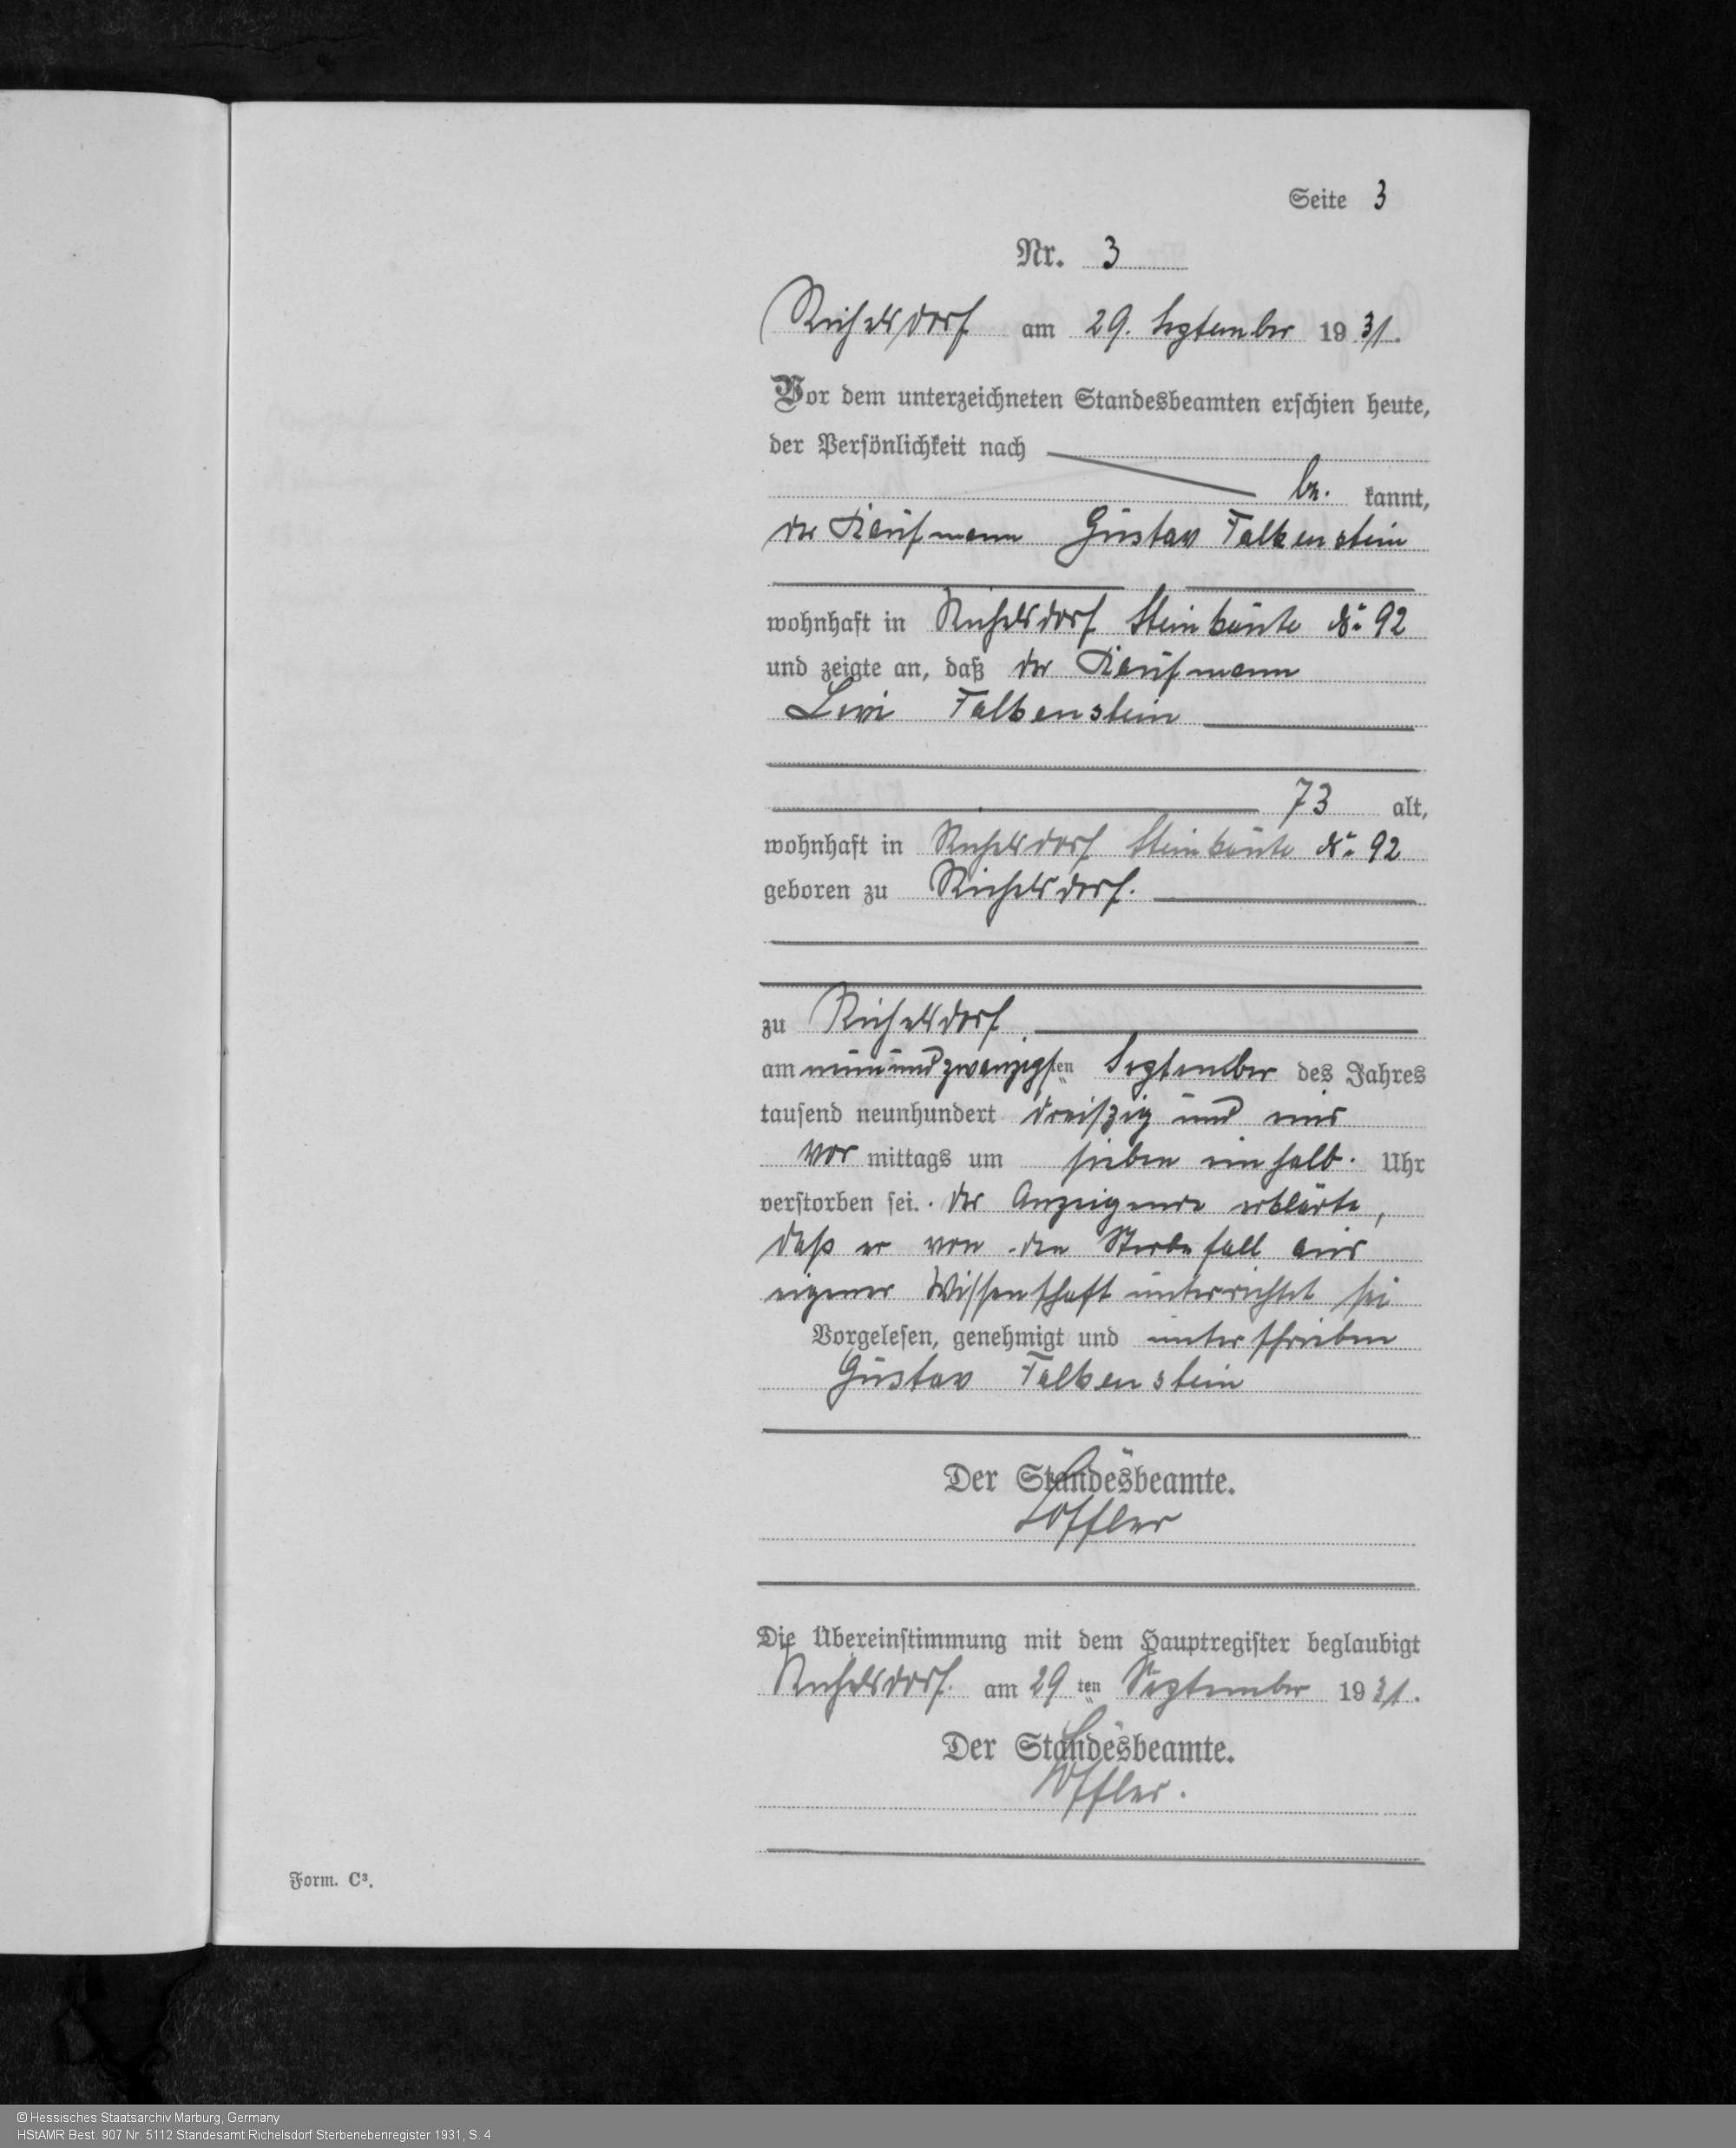 Seite 3
Nr. 3
Richelsdorf am 29. September 1931.
Vor dem unterzeichneten Standesbeamten erschien heute,
der Persönlichkeit nach
be. kannt,
der Kaufmann Gustav Falkenstein
wohnhaft in Richelsdorf Steinkaute No 92
und zeigte an, daß der Kaufmann
Levi Falkenstein
73 alt,
wohnhaft in Richelsdorf Steinkaute No 92
geboren zu Richelsdorf.
zu Richelsdorf
am neunundzwanzigsten September des Jahres
tausend neunhundert dreißzig und eins
vor mittags um sieben ein halb. Uhr
verstorben sei. der Anzeigende erklärte,
daß er von den Sterbefall aus
eigener Wissenschaft unterrichtet sei
Vorgelesen, genehmigt und unterschrieben
Gustav Falkenstein
Der Standesbeamte.
Löffler
Die Übereinstimmung mit dem Hauptregister beglaubigt
Richelsdorf. am 29 ten September 1931.
Der Standesbeamte.
Löffler.
Form. C³.
© Hessisches Staatsarchiv Marburg, Germany
HStAMR Best. 907 Nr. 5112 Standesamt Richelsdorf Sterbenebenregister 1931, S. 4